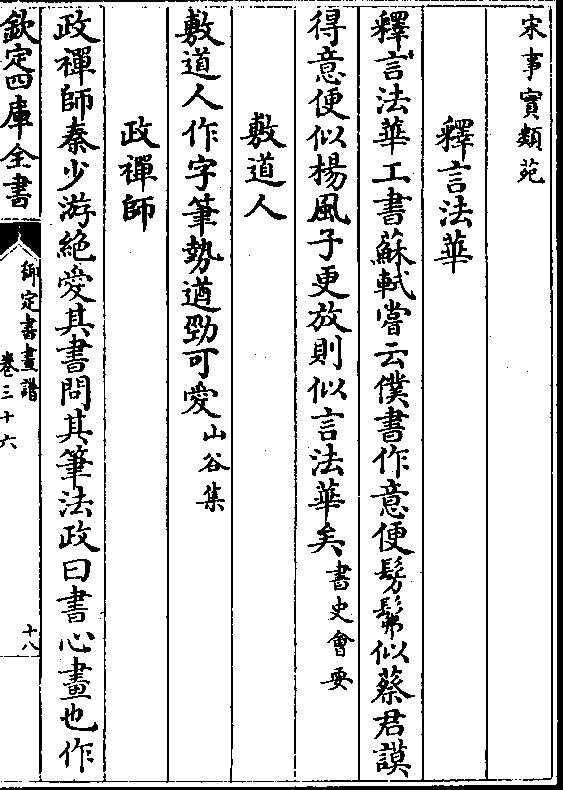 宋事實類苑
釋言法華
釋言法華工書蘇軾嘗云僕書作意便髣髴似蔡君謨
得意便似楊風子更放則似言法華矣書史會要
敷道人
敷道人作字筆勢遒勁可愛山谷集
政禪師
政禪師秦少游絕愛其書問其筆法政曰書心畫也作
欽定四庫全書
御定書畫譜
卷三十六
十八